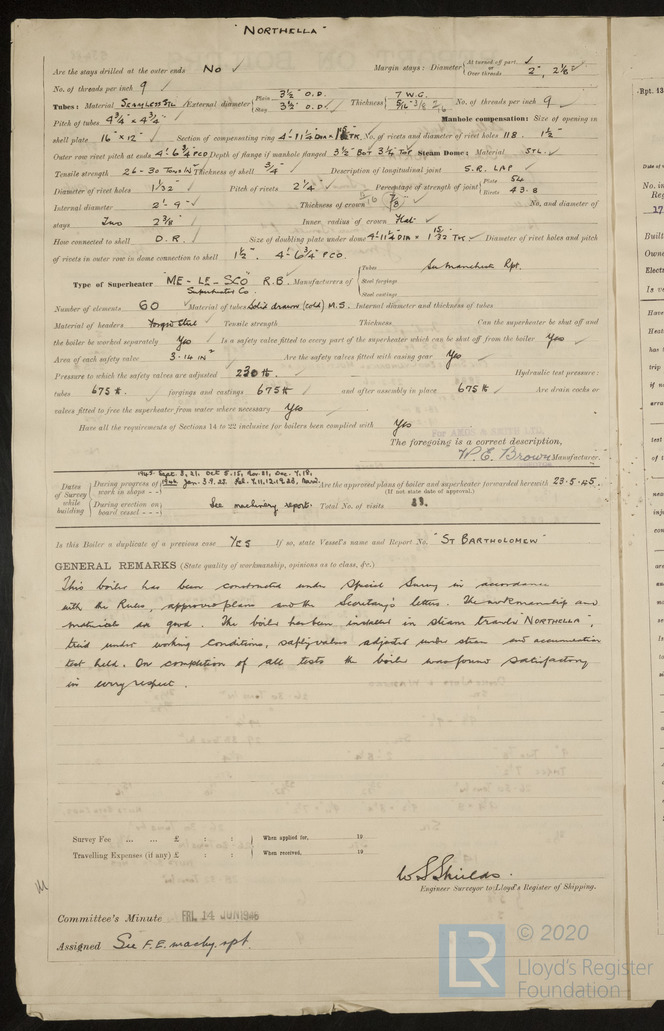 "NORTHELLA"
Are the stays drilled at the outer ends No ✓ Margin stays: Diameter { At turned off part, ✓ or Over threads 2", 2 1/8" ✓
No. of threads per inch 9 ✓
Tubes: Material SEAMLESS STL ✓ External diameter { Plain 3 1/2" O.D. Stay 3 1/2" O.D. ✓ Thickness { 7 W.G. 5/16" 3/8 No. of threads per inch 9 ✓
Pitch of tubes 4 3/4" x 4 3/4" ✓ Manhole compensation: Size of opening in
shell plate 16" x 12" ✓ Section of compensating ring 4'-11 1/4" DIA x TK. No. of rivets and diameter of rivet holes 118. 1 1/2"
Outer row rivet pitch at ends 4'-6 3/4" PCD Depth of flange if manhole flanged 3 1/2" BOT 3 1/4" TOP Steam Dome: Material STL. ✓
Tensile strength 26-30 TONS IN" Thickness of shell 3/4" ✓ Description of longitudinal joint S.R. LAP ✓
Diameter of rivet holes 1 1/32" ✓ Pitch of rivets 2 1/4" ✓ Percentage of strength of joint { Plate 54 Rivets 43.8
Internal diameter 2'-9" ✓ Thickness of crown 7/8" ✓ No. and diameter of
stays Two 2 3/8" ✓ Inner radius of crown Flat ✓
How connected to shell D.R. ✓ Size of doubling plate under dome 4'-11 1/4 DIA x 1 15/32 TK ✓ Diameter of rivet holes and pitch
of rivets in outer row in dome connection to shell 1 1/2". 4'-6 3/4" PCD.
Type of Superheater "ME-LE-SCO" R.B. Manufacturers of { Tubes Steel forgings Steel castings See Manchester Rpt.
Superheater Co.
Number of elements 60 ✓ Material of tubes Solid drawn (cold) M.S. Internal diameter and thickness of tubes
Material of headers Forged Steel ✓ Tensile strength Thickness Can the superheater be shut off and
the boiler be worked separately Yes ✓ Is a safety valve fitted to every part of the superheater which can be shut off from the boiler Yes ✓
Area of each safety valve 3.14 IN" ✓ Are the safety valves fitted with easing gear Yes ✓
Pressure to which the safety valves are adjusted 230 #. ✓ Hydraulic test pressure:
tubes 675 #. ✓ forgings and castings 675 # ✓ and after assembly in place 675 # ✓ Are drain cocks or
valves fitted to free the superheater from water where necessary Yes ✓
Have all the requirements of Sections 14 to 22 inclusive for boilers been complied with Yes ✓
The foregoing is a correct description,
W. E. Brown Manufacturer.
Dates of Survey while building { During progress of work in shops - - 1945 Sept. 3, 21, Oct 5.15, Nov. 21, Dec. 7, 18, 1946 Jan. 3.9.22 Feb. 7.11.12.19.26, Are the approved plans of boiler and superheater forwarded herewith 23.5.45.
(If not state date of approval.)
During erection on board vessel - - - See machinery report. Total No. of visits
Is this Boiler a duplicate of a previous case YES If so, state Vessel's name and Report No. "ST BARTHOLOMEW"
GENERAL REMARKS (State quality of workmanship, opinions as to class, &c.)
This boiler has been constructed under Special Survey in accordance
with the Rules, approved plans and the Secretary's letters. The workmanship and
materials are good. The boiler has been installed in steam trawler "NORTHELLA",
tried under working conditions, safety valves adjusted under steam and accumulation
test held. On completion of all tests the boiler was found satisfactory
in every respect.
Survey Fee ... ... £ : : When applied for, 19
Travelling Expenses (if any) £ : : When received, 19
W S Shields.
Engineer Surveyor to Lloyd's Register of Shipping.
Committee's Minute FRI. 14 JUN 1946
Assigned See F.E. machy. rpt.
© 2020
LR Lloyd's Register
Foundation
Rpt. 13